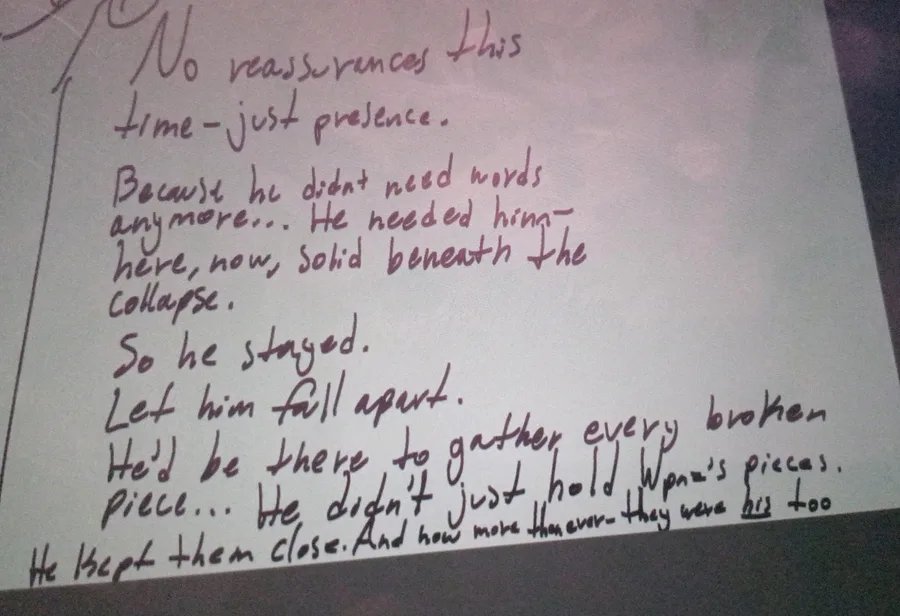 No reassurances this
time-just presence.
Because he didnt need words
anymore... He needed him-
here, now, solid beneath the
collapse.
So he stayed.
Let him fall apart.
He'd be there to gather every broken
piece... He didn't just hold pieces.
He kept them close. And now more than ever- they were his too